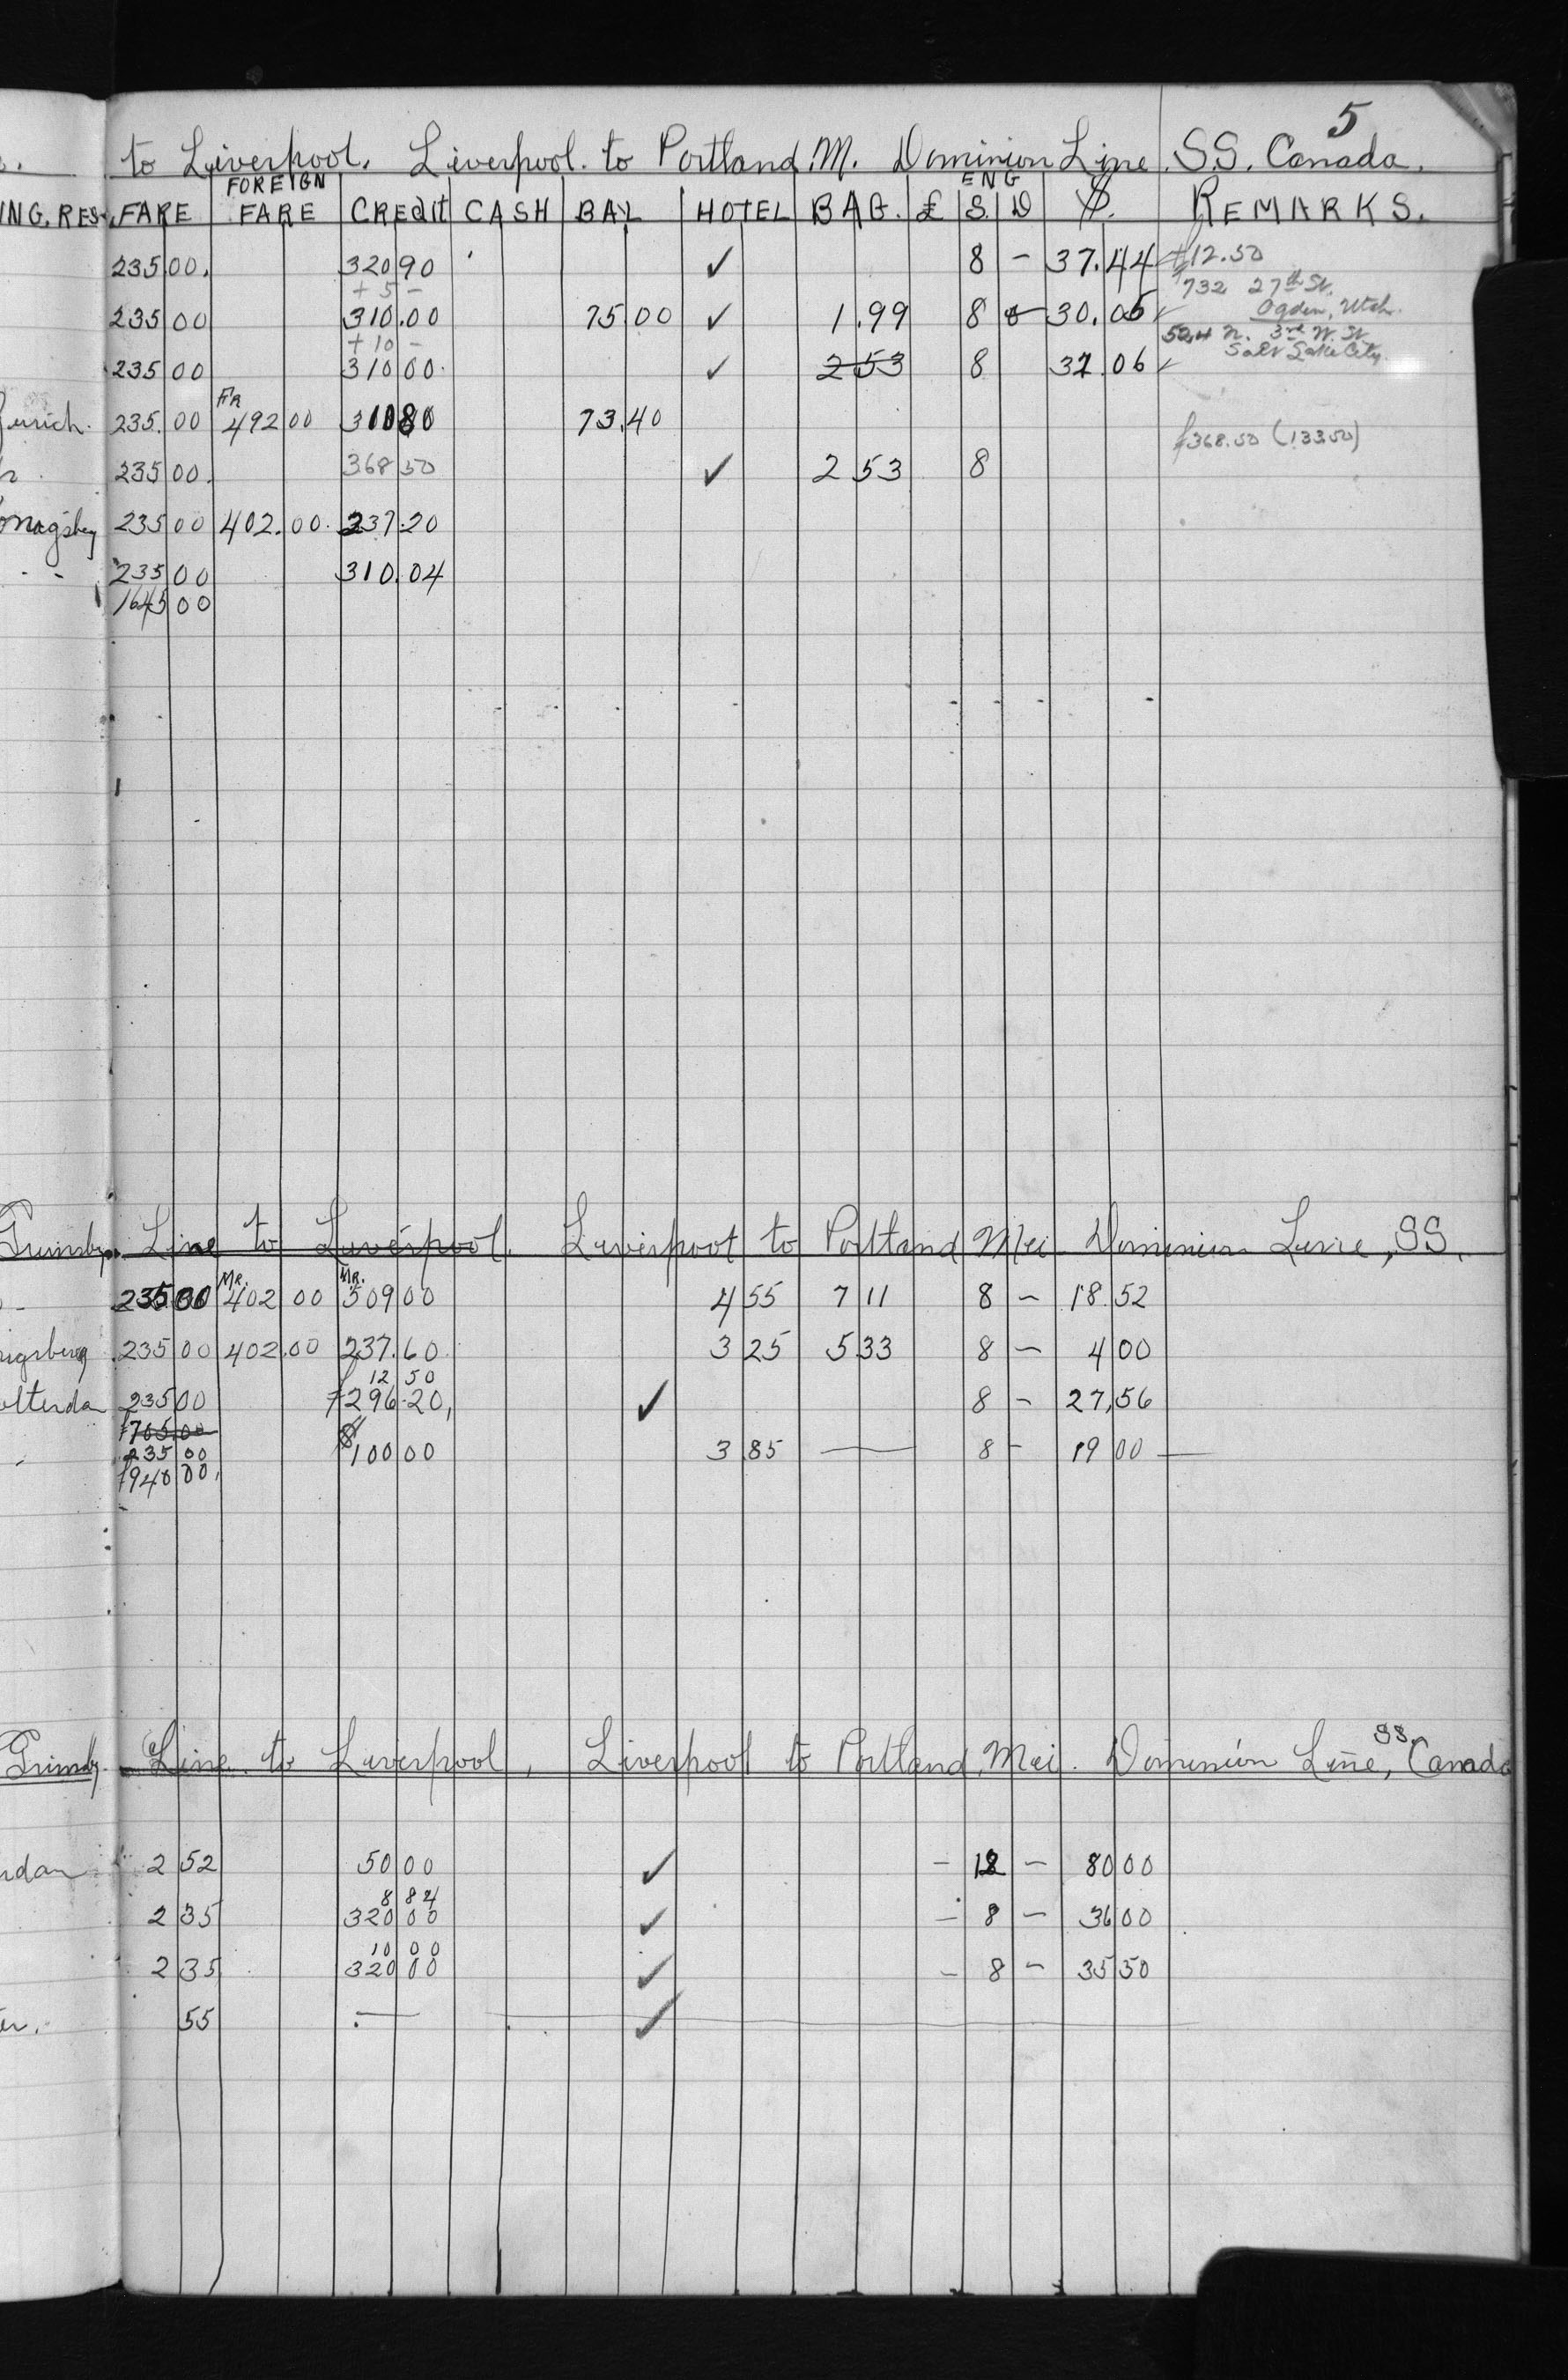 5
to Liverpool. Liverpool. to Portland M. Dominion Line. S.S. Canada.
FOREIGN ENG
ING. RES. FARE FARE CREdit CASH BAL HOTEL BAG. £ S. D $. REMARKS.
235 00. 320 90 ✓ 8 – 37.44 ✓ +12.50
+ 5 – 732 27th St.
235 00 310.00 75 00 ✓ 1.99 8 30.05 ✓ Ogden, Utah.
+ 10 – 524 N. 3rd W. St
235 00 310 00. ✓ 2 53 8 37.06 ✓ Salt Lake City.
FR
Zurich. 235.00 492 00 310 80 73.40
f368.50 (133.50)
235 00. 368 50 ✓ 2 53 8
235 00 402.00. 237.20
235 00 310.04
1645 00
Grimsby. Line to Liverpool. Liverpool to Portland Mei Dominion Line, SS.
MR. MR.
235 00 402 00 309 00 4 55 7 11 8 – 18.52
235 00 402.00 237.60 3 25 5 33 8 – 4 00
12 50
235 00 f296.20, ✓ 8 – 27,56
f705.00
235 00 $100 00 3 85 — 8 – 19 00 —
f940 00,
Grimsby. Line. to Liverpool, Liverpool to Portland, Mei. Dominion Line, SS. Canada
2 52 50 00 ✓ – 12 – 80 00
8 84
2 35 320 00 ✓ – 8 – 36 00
10 00
2 35 320 00 ✓ – 8 – 35 50
55 — ✓